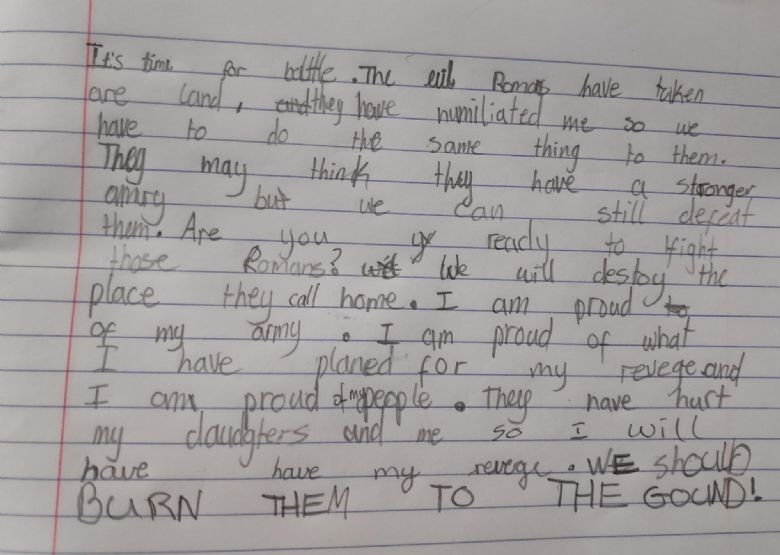 It's time for battle. The evil Romans have taken
are land, and they have humiliated me so we
have to do the same thing to them.
They may think they have a stronger
amry but we can still defeat
them. Are you ready to fight
those Romans? We will destoy the
place they call home. I am proud to
of my army. I am proud of what
I have planed for my revege and
I am proud of my people. They have hurt
my daudgters and me so I will
have have my revege. WE should
BURN THEM TO THE GOUND!